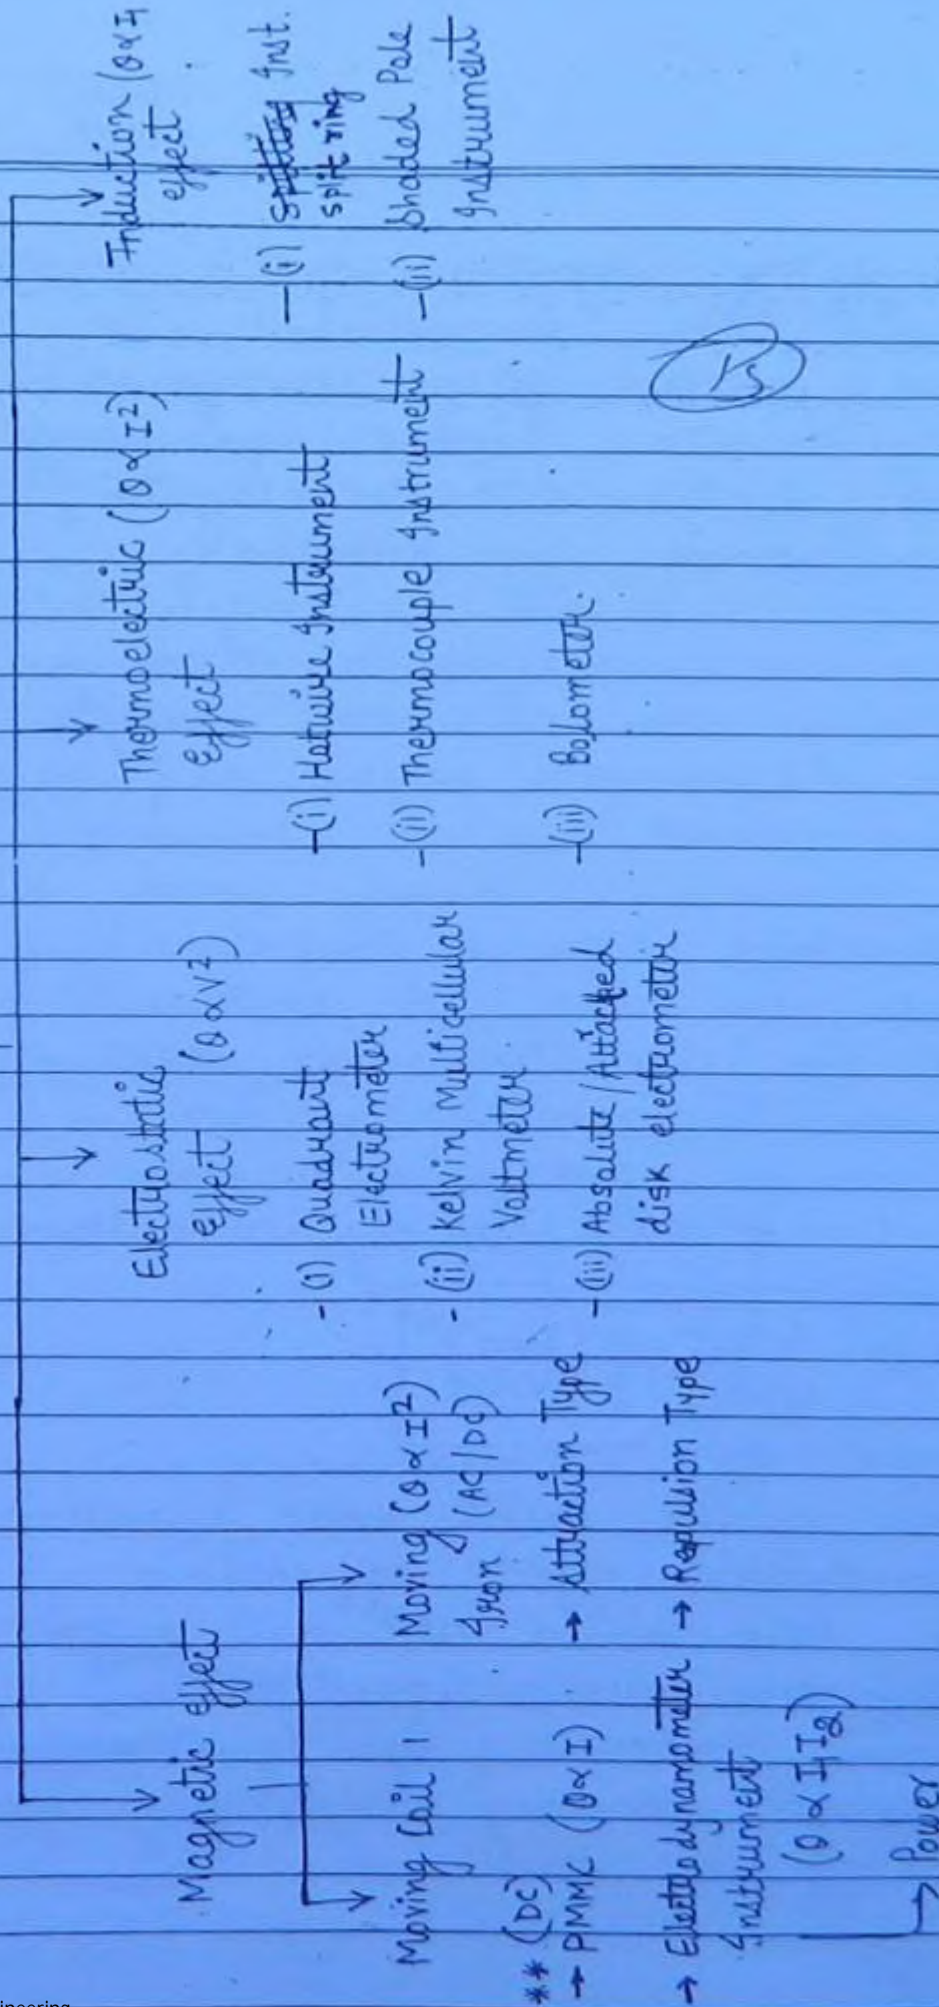 Magnetic effect
Moving Coil
** (DC)
→ PMMC (θ∝I)
→ Electrodynamometer
Instrument
(θ ∝ I1I2)
→ Power
Moving (θ∝I²)
Iron (AC/DC)
→ Attraction Type
→ Repulsion Type
Electrostatic
effect (θ∝V²)
- (i) Quadrant
Electrometer
- (ii) Kelvin Multicellular
Voltmeter
- (iii) Absolute/Attacked
disk electrometer
Thermoelectric (θ∝I²)
Effect
- (i) Hotwire Instrument
- (ii) Thermocouple Instrument
- (iii) Bolometer.
Induction (θ∝I
effect
- (i) Inst.
split ring
- (ii) Shaded Pole
Instrument